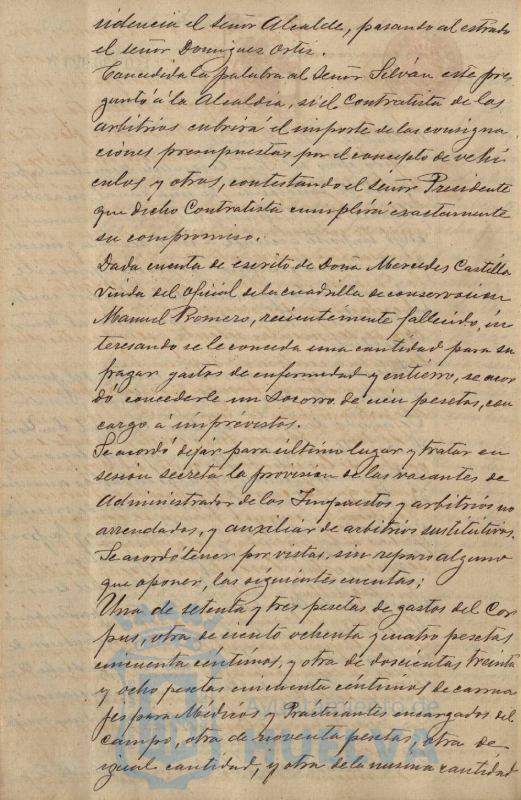 sidencia el señor Alcalde, pasando al estrado
el señor Dominguez Ortiz.
Concedida la palabra al señor Selván este pre
guntó á la Alcaldia, si el Contratista de los
arbitrios cubrirá el importe de las consigna
ciones presupuestas por el concepto de vehi
culos y otros, contestando el señor Presidente
que dicho Contratista cumplirá exactamente
su compromiso.
Dada cuenta de escrito de Doña Mercedes Castilla
viuda del oficial de la cuadrilla de conservacion
Manuel Romero, recientemente fallecido, in
teresando se le conceda una cantidad para su
fragar gastos de enfermedad y entierro, se acor
dó concederle un socorro de cien pesetas, con
cargo á imprevistos.
Se acordó dejar para último lugar y tratar en
sesión secreta la provisión de las vacantes de
Administrador de los Impuestos y arbitrios no
arrendados, y auxiliar de arbitrios sustitutivos.
Se acordó tener por vistas, sin reparo alguno
que oponer, las siguientes cuentas;
Una de setenta y tres pesetas de gastos del Cor
pus, otra de ciento ochenta y cuatro pesetas
cincuenta centimos, y otra de doscientas treinta
y ocho pesetas cincuenta céntimos de carrua
jes para Médicos y Practicantes encargados del
campo, otra de noventa pesetas, otra de
igual cantidad, y otra de la misma cantidad
Ayuntamiento de
HUELVA